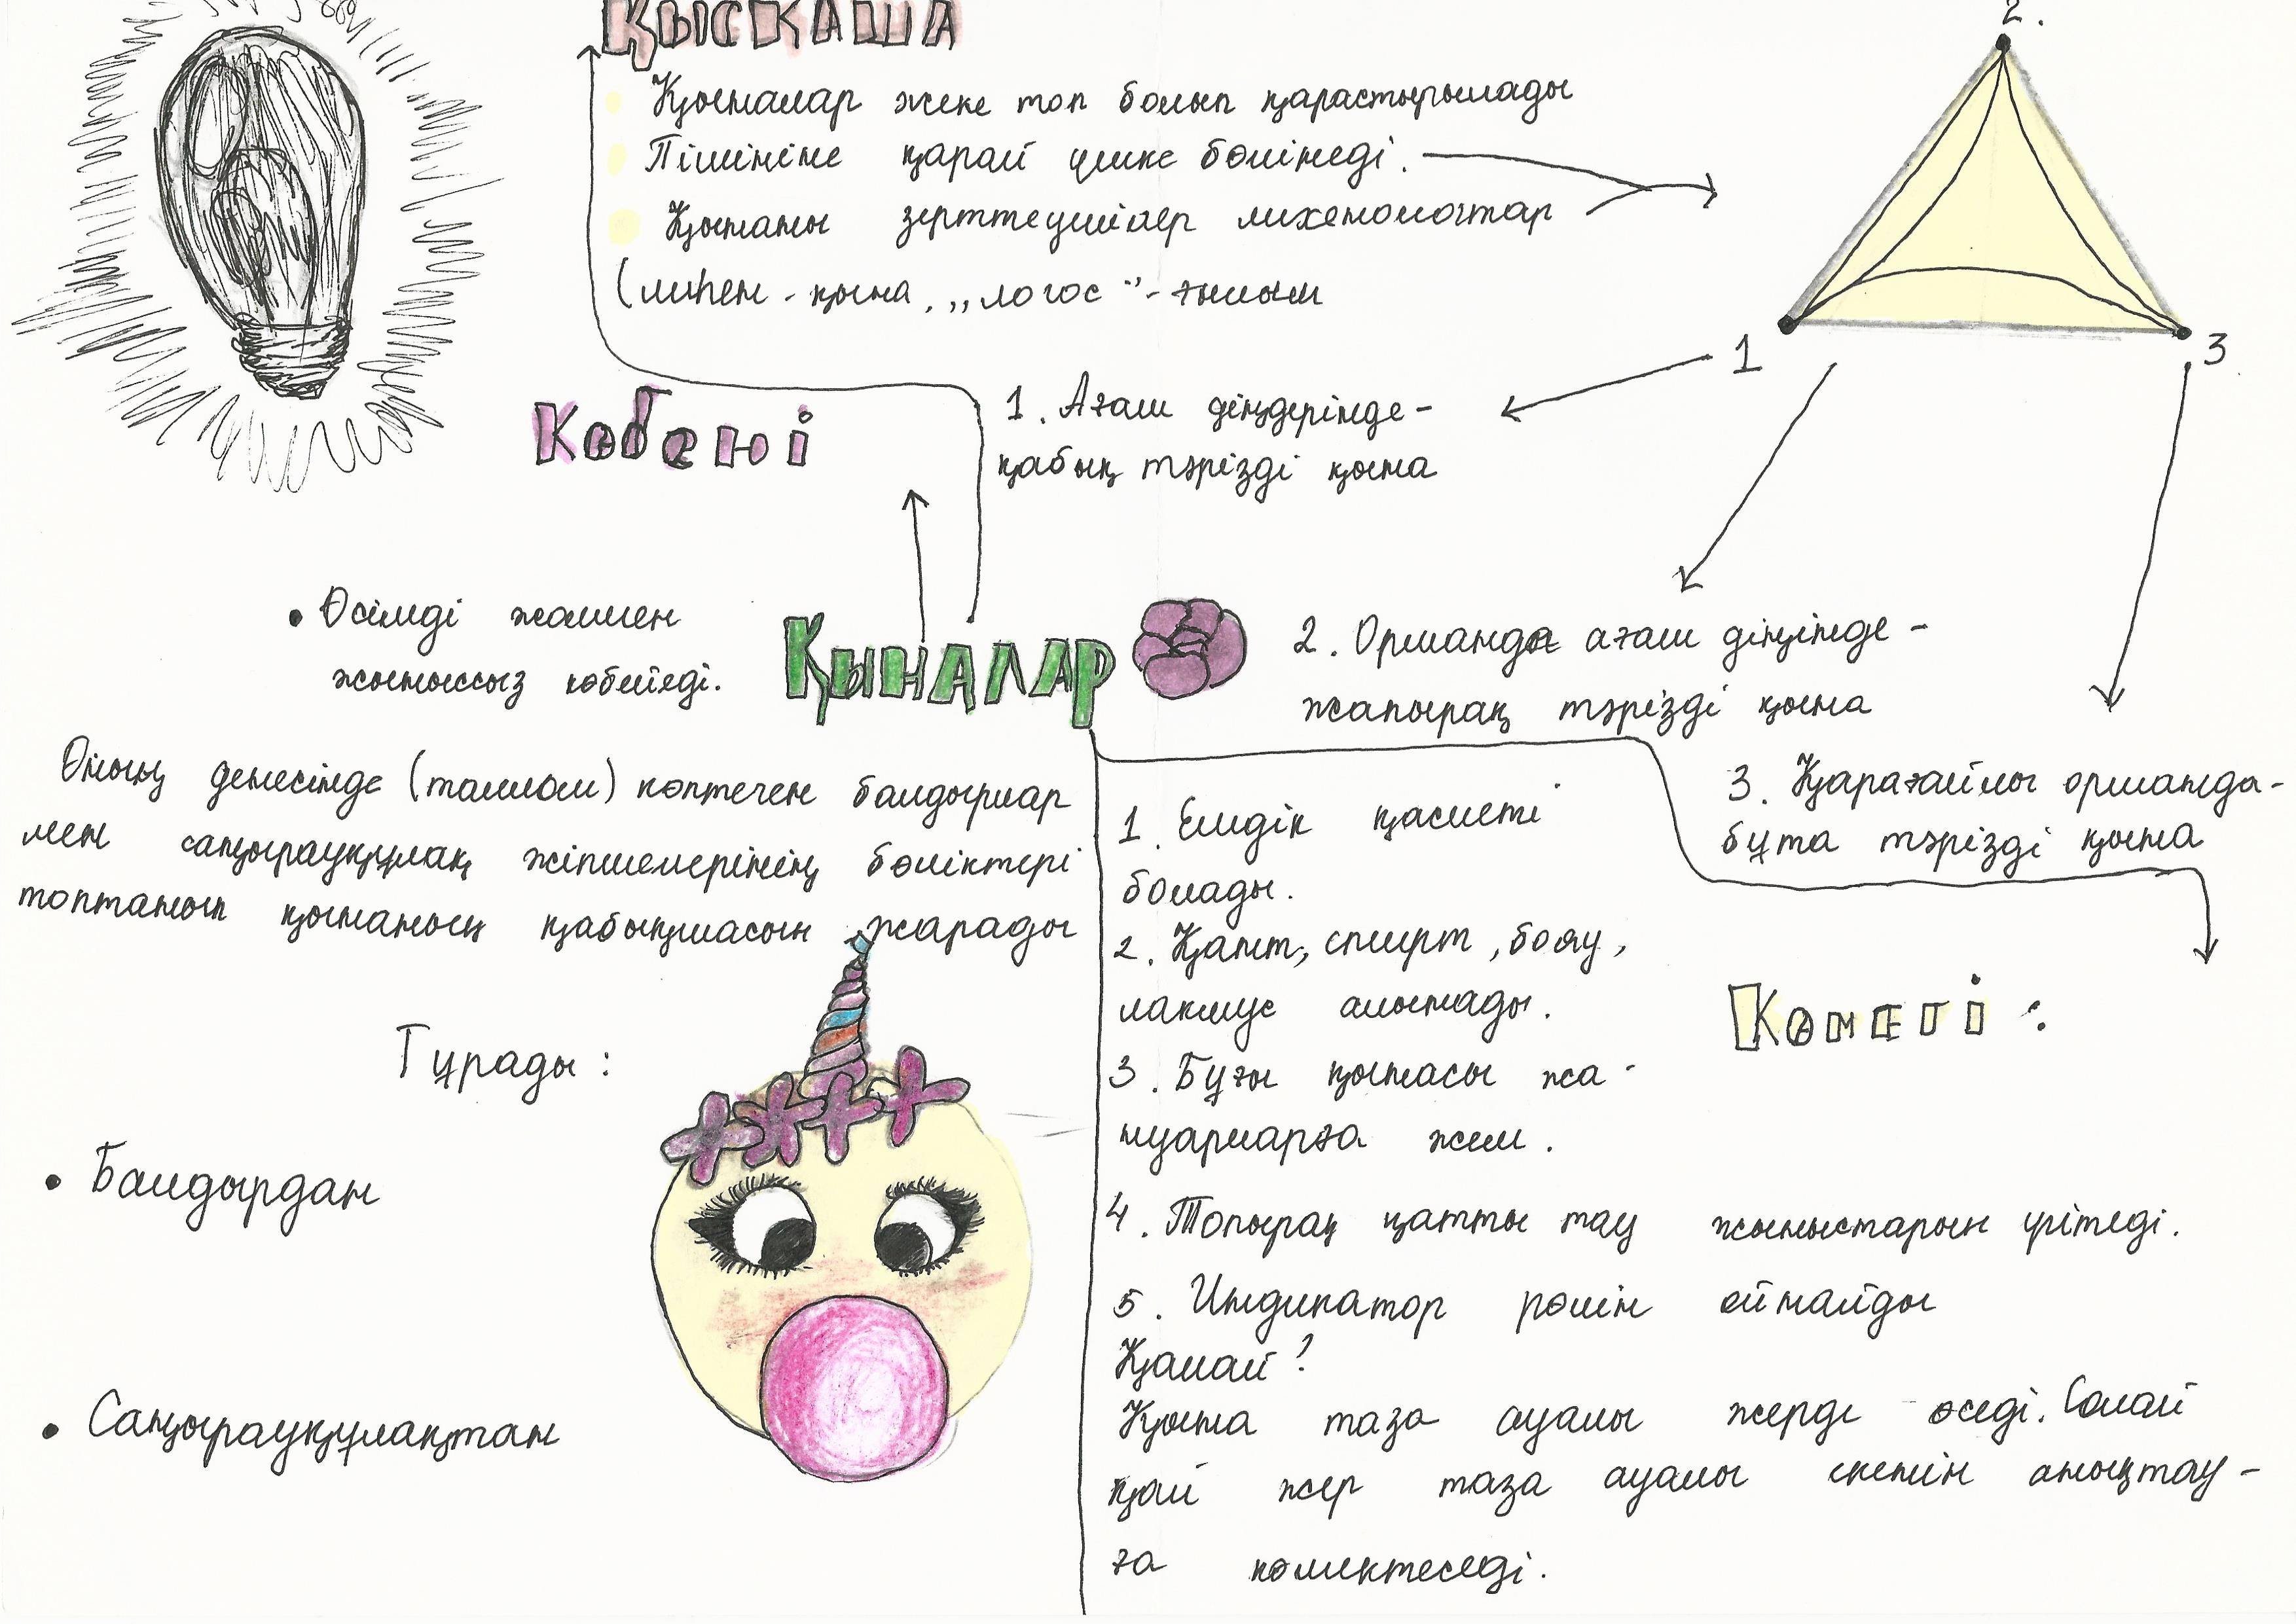 ҚЫСҚАША
Қыналар жеке топ болып қарастырылады
Пішініне қарай үшке бөлінеді.
Қынаны зерттеушілер лихенологтар
(лиһен - қына, „логос" - ғылым
2.
1
3
Көбеюі
1. Ағаш діңдерінде-
қабық тәрізді қына
• Өсімді жолмен
жыныссыз көбейеді.
Қыналар
2. Орманда ағаш діңінде -
жапырақ тәрізді қына
3. Қарағайлы орманда-
бұта тәрізді қына
Оның денесінде (таллом) көптеген балдырлар
мен саңырауқұлақ жіпшелерінің бөліктері
топталып қынаның қабықшасын жарады
Тұрады :
• Балдырдан
• Саңырауқұлақтан
1. Емдік қасиеті
болады.
2. Қант, спирт, бояу,
лакмус алынады.
3. Бұғы қынасы жа-
нуарларға жем.
4. Топырақ қатты тау жыныстарын үгітеді.
5. Индикатор рөлін ойнайды
Қалай?
Қына таза ауалы жерде өседі. Солай
қай жер таза ауалы екенін анықтау-
ға көмектеседі.
Көмегі :